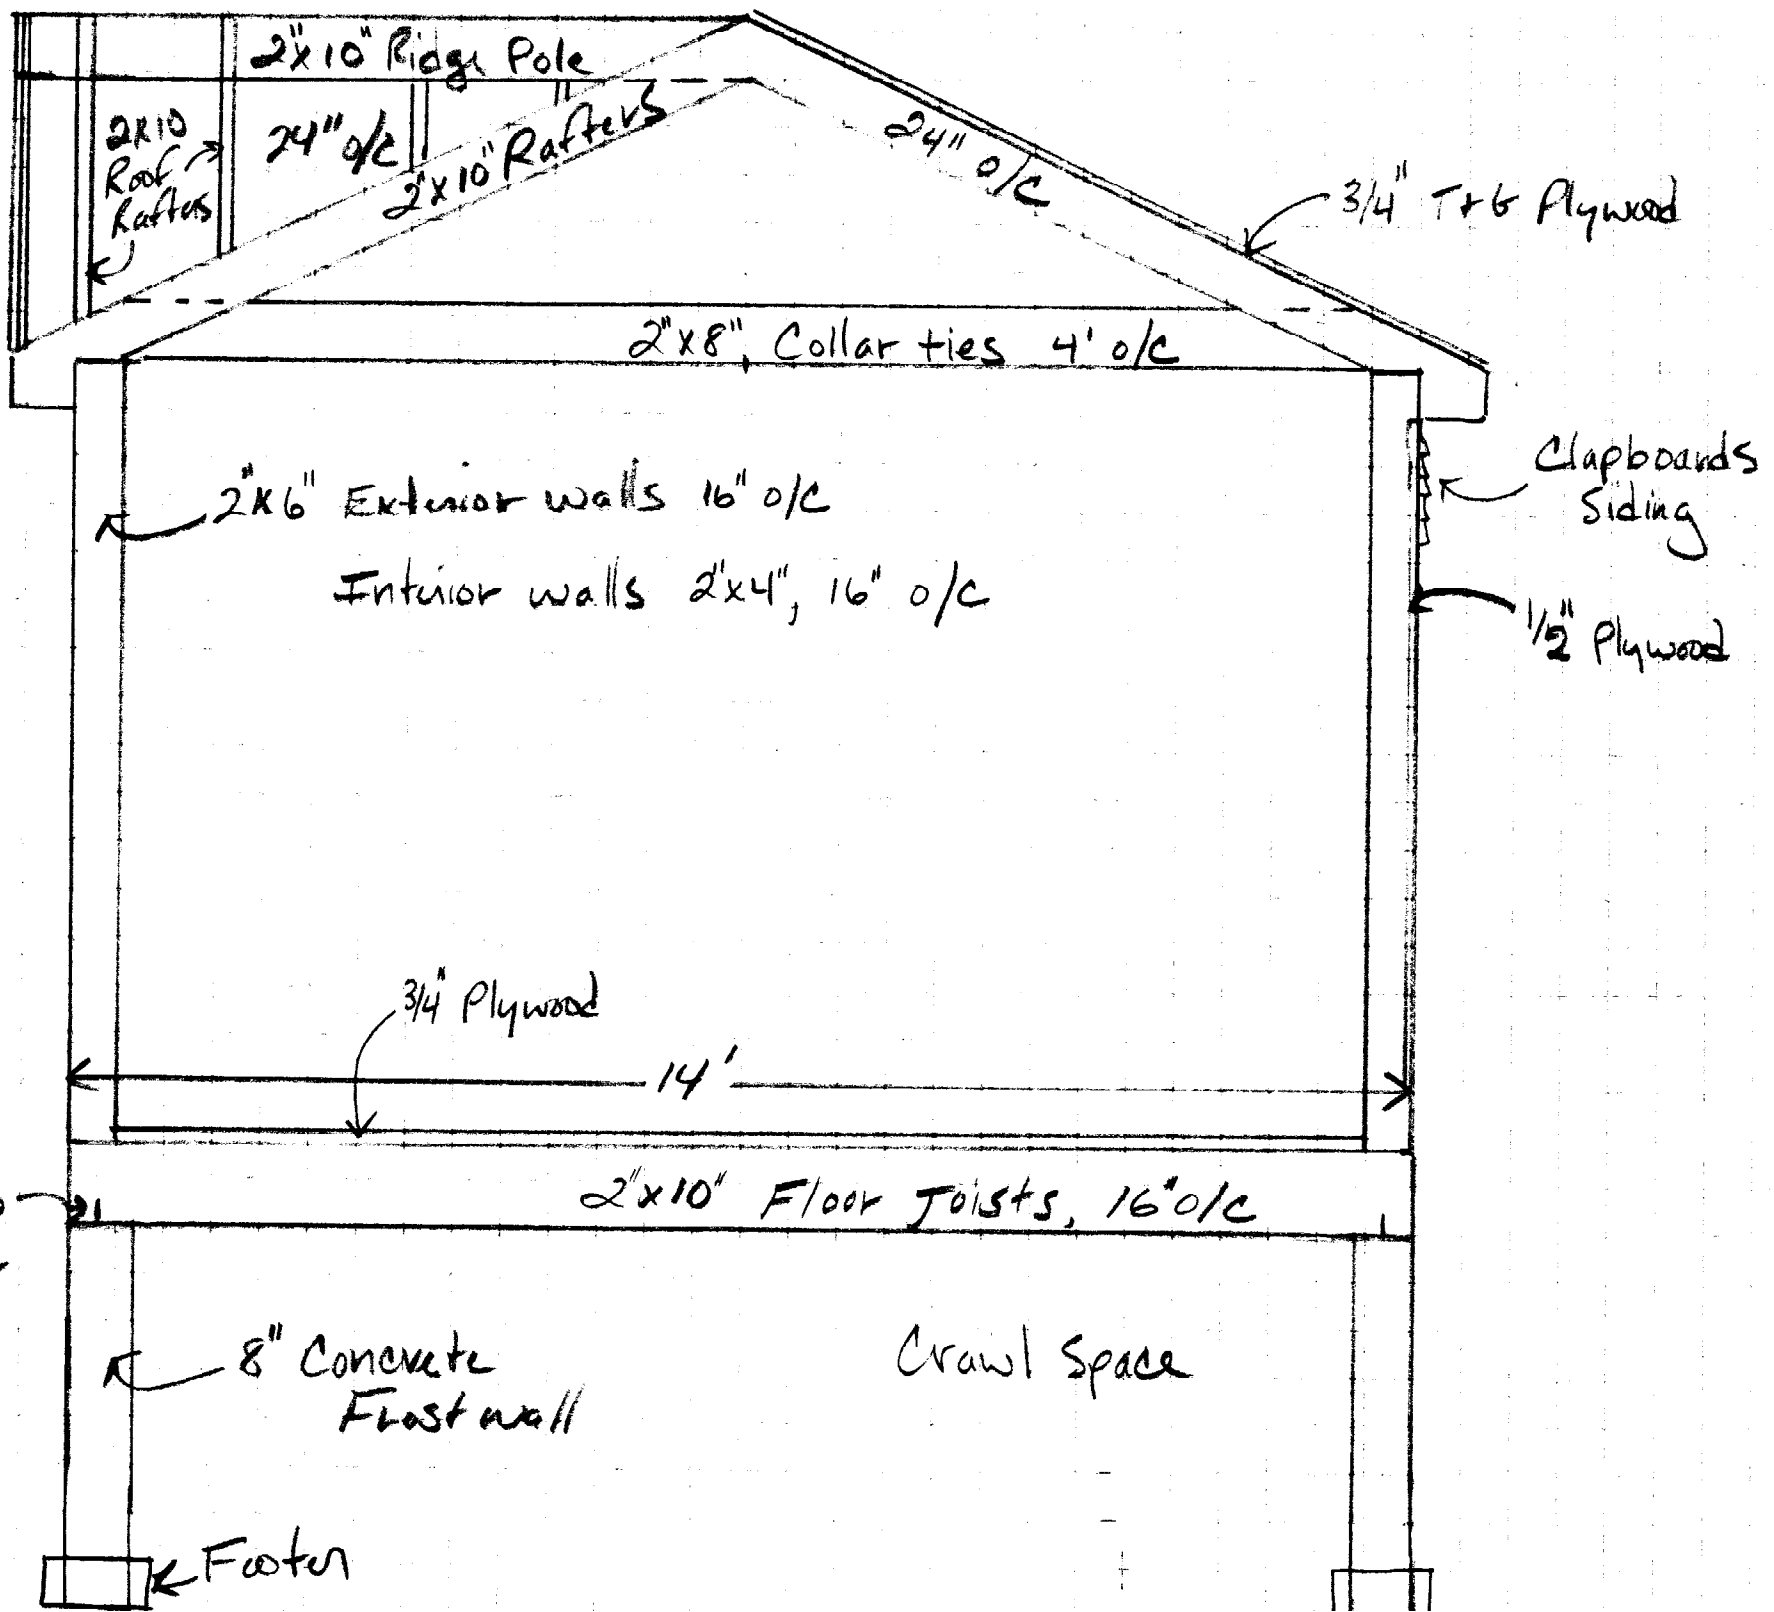 2"x10" Ridge Pole
2x10
Roof
Rafters
24" o/c
2"x10" Rafters
24" o/c
3/4" T+G Plywood
2"x8", Collar ties 4' o/c
Clapboards
Siding
2"x6" Exterior walls 16" o/c
Interior walls 2"x4", 16" o/c
1/2" Plywood
3/4" Plywood
14'
2"x10" Floor Joists, 16" o/c
8" Concrete
Frost wall
Crawl Space
Footer